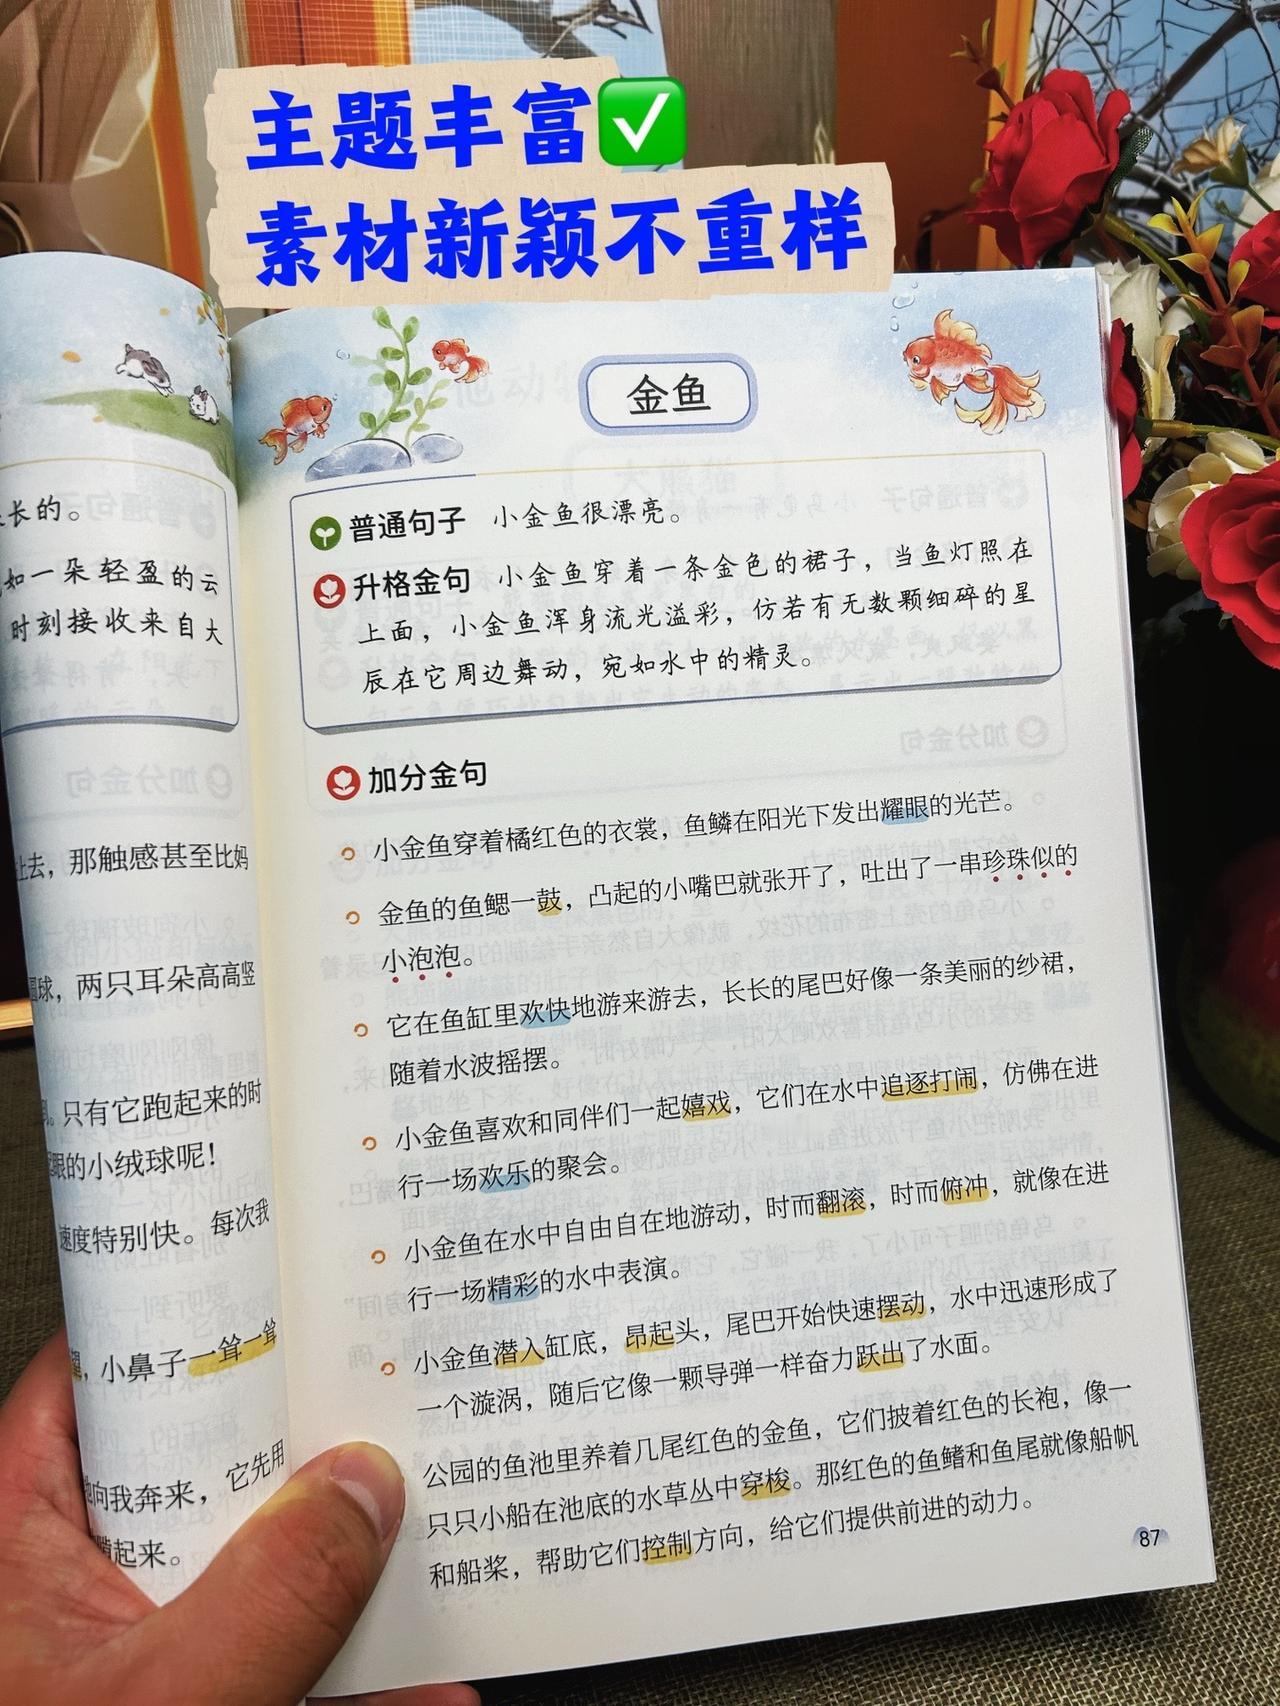 主题丰富✅
素材新颖不重样
长的。
如一朵轻盈的云
时刻接收来自大
上去，那触感甚至比妈
圆球，两只耳朵高高竖
只有它跑起来的时
眼的小绒球呢！
速度特别快。每次我
，小鼻子一耸一耸
向我奔来，它先用
起来。
金鱼
普通句子 小金鱼很漂亮。
升格金句 小金鱼穿着一条金色的裙子，当鱼灯照在
上面，小金鱼浑身流光溢彩，仿若有无数颗细碎的星
辰在它周边舞动，宛如水中的精灵。
加分金句
小金鱼穿着橘红色的衣裳，鱼鳞在阳光下发出耀眼的光芒。
金鱼的鱼鳃一鼓，凸起的小嘴巴就张开了，吐出了一串珍珠似的
小泡泡。
它在鱼缸里欢快地游来游去，长长的尾巴好像一条美丽的纱裙，
随着水波摇摆。
小金鱼喜欢和同伴们一起嬉戏，它们在水中追逐打闹，仿佛在进
行一场欢乐的聚会。
小金鱼在水中自由自在地游动，时而翻滚，时而俯冲，就像在进
行一场精彩的水中表演。
小金鱼潜入缸底，昂起头，尾巴开始快速摆动，水中迅速形成了
一个漩涡，随后它像一颗导弹一样奋力跃出了水面。
公园的鱼池里养着几尾红色的金鱼，它们披着红色的长袍，像一
只只小船在池底的水草丛中穿梭。那红色的鱼鳍和鱼尾就像船帆
和船桨，帮助它们控制方向，给它们提供前进的动力。
87